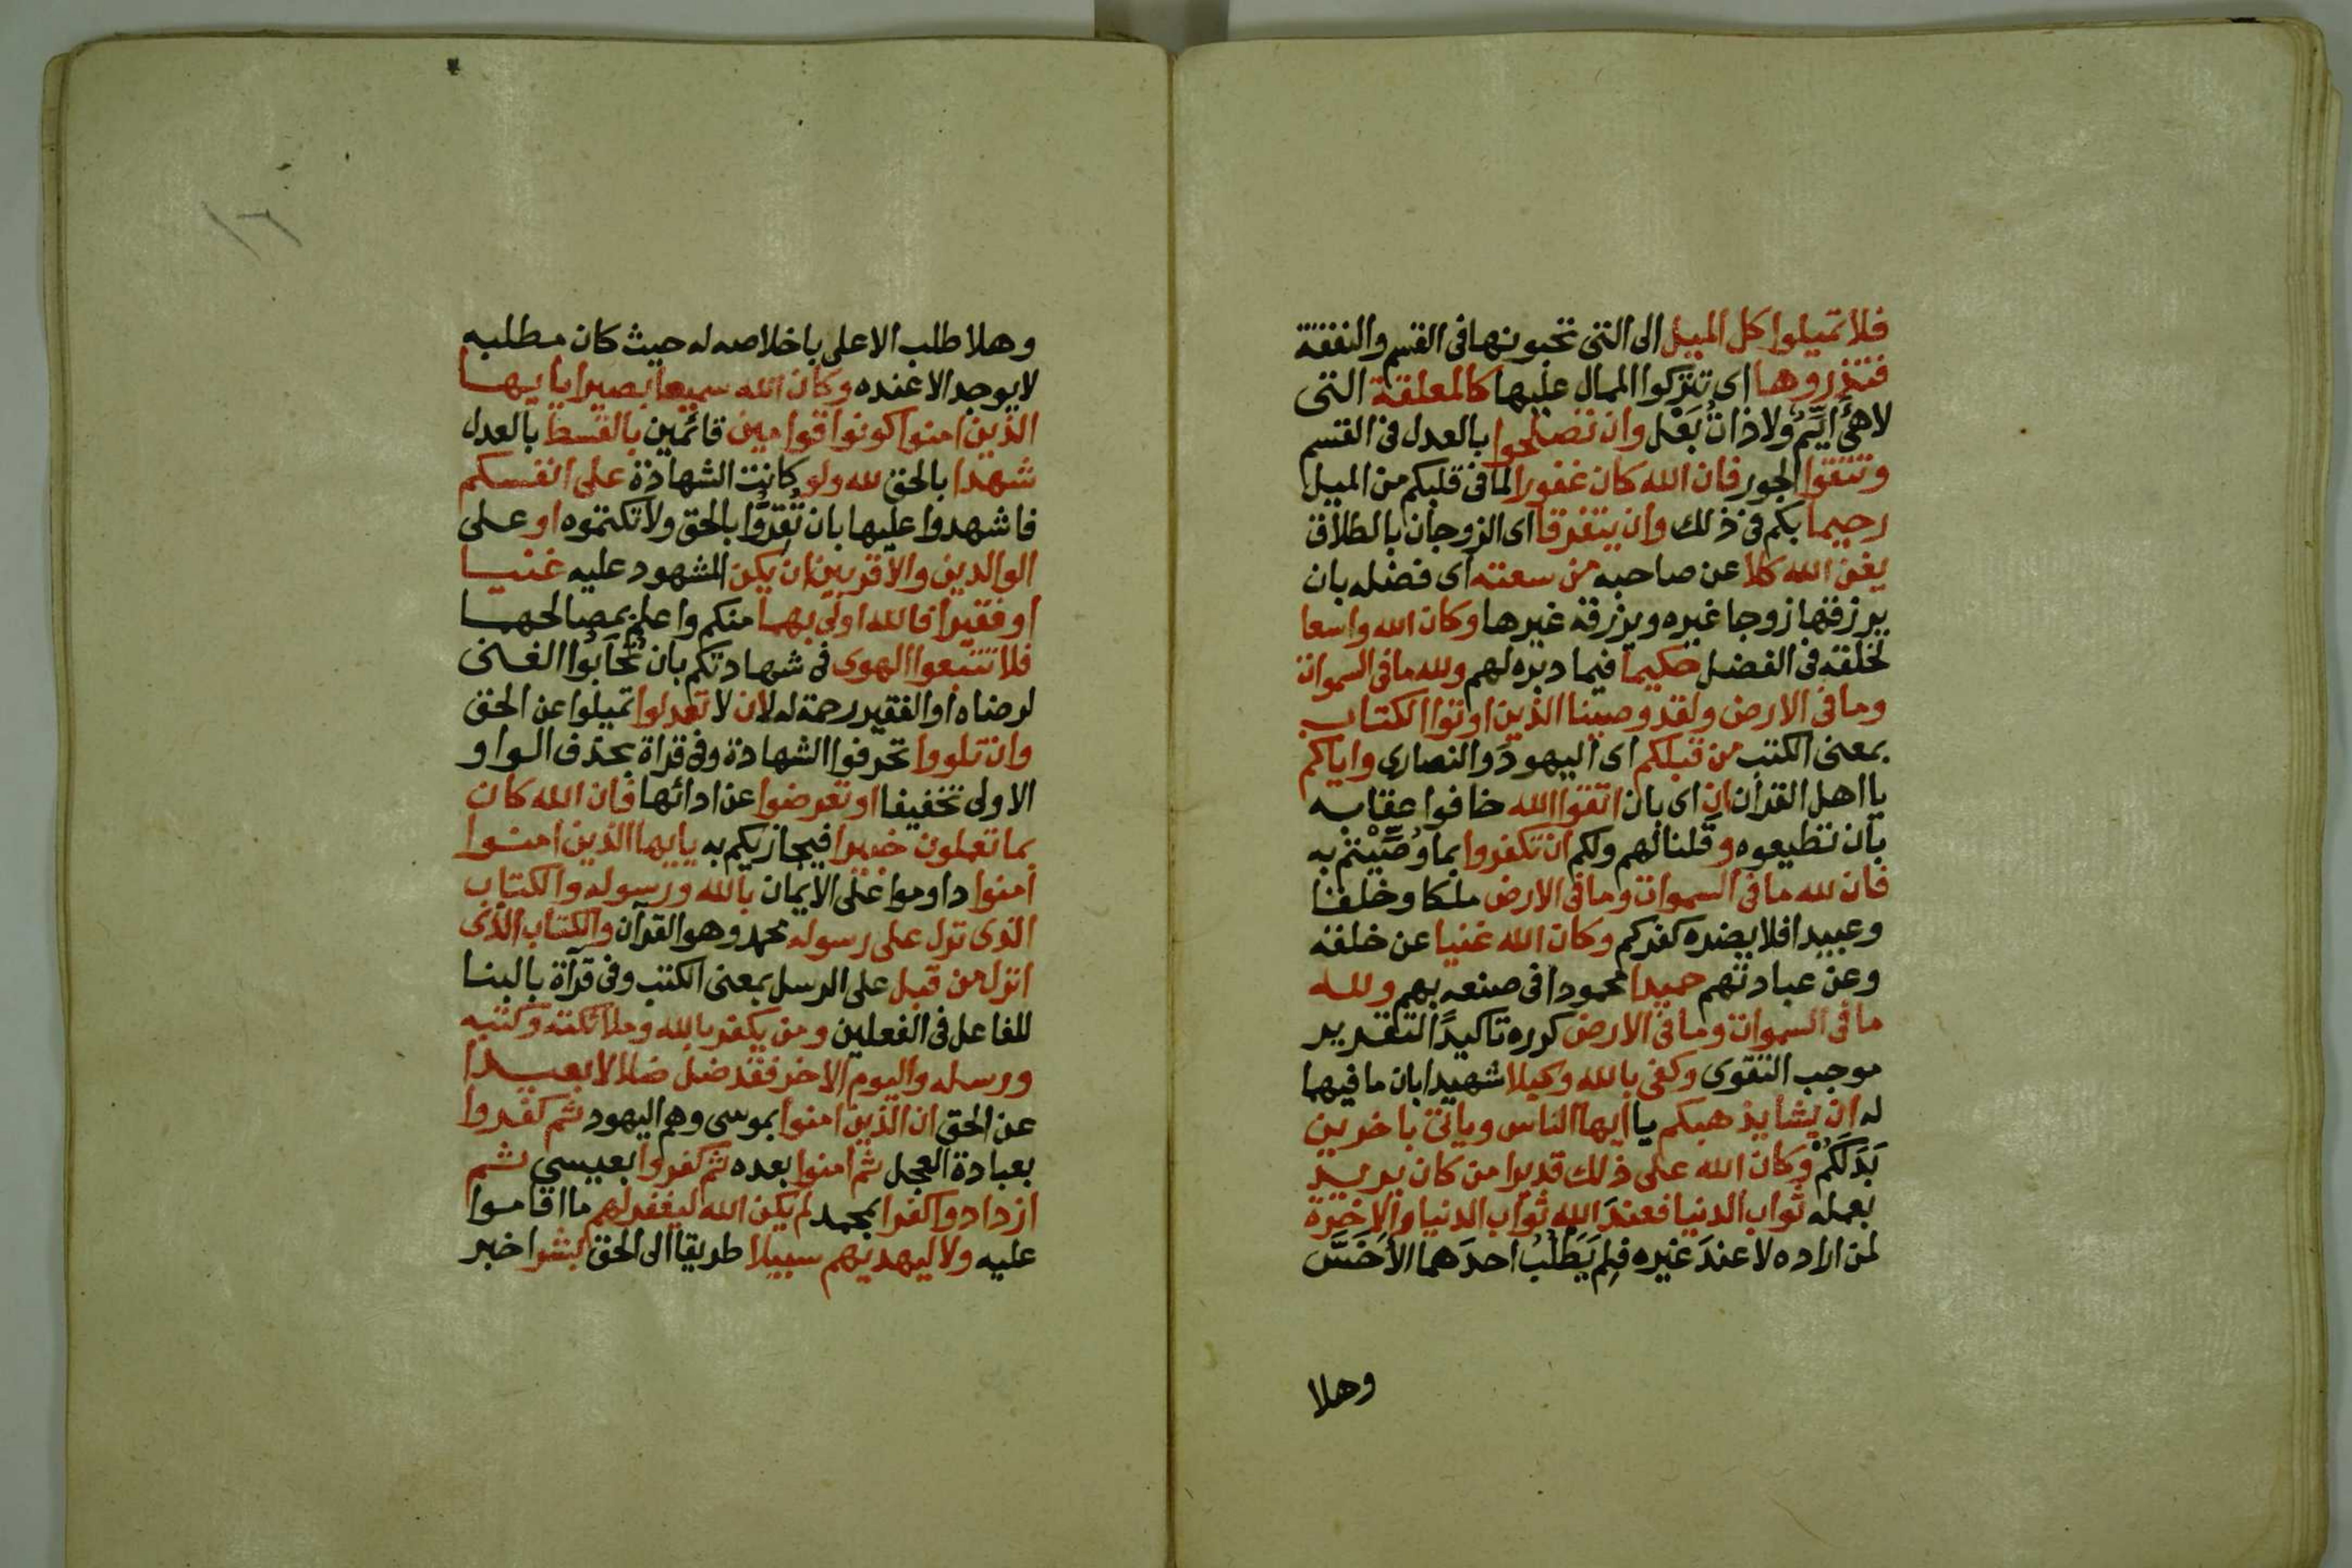 فلا تميلوا كل الميل الى التى تحبونها فى القسم والنفقة
فتذروها اى تتركوا الممال عليها كالمعلقة التى
لاهى ايّم ولا ذات بَعْل وان تصلحوا بالعدل فى القسم
وتتقوا الجور فان الله كان غفورا لما فى قلبكم من الميل
رحيما بكم فى ذلك وان يتفرقا اى الزوجان بالطلاق
يغن الله كلا عن صاحبه من سعته اى فضله بان
يرزقها زوجا غيره ويرزقه غيرها وكان الله واسعا
لخلقه فى الفضل حكيما فيما دبره لهم ولله ما فى السموات
وما فى الارض ولقد وصينا الذين اوتوا الكتاب
بمعنى الكتب من قبلكم اى اليهود والنصارى واياكم
يا اهل القرآن ان اى بان اتقوا الله خافوا عقابه
بان تطيعوه وقلنا لهم ولكم ان تكفروا بما وُصِّيْتم به
فان لله ما فى السموات وما فى الارض ملكا وخلقا
وعبيدا فلا يضره كفركم وكان الله غنيا عن خلقه
وعن عبادتهم حميدا محمودا فى صنعه بهم ولله
ما فى السموات وما فى الارض كرره تاكيدًا لتقرير
موجب التقوى وكفى بالله وكيلا شهيدا بان ما فيهما
له ان يشا يذهبكم يا ايها الناس ويات باخرين
بَدَلَكُمْ وكان الله على ذلك قديرا من كان يريد
بعمله ثواب الدنيا فعند الله ثواب الدنيا والاخرة
لمن اراده لا عندَ غيره فلِم يَطْلُبُ احدَهما الأخَسَّ
وهلا
وهلا طلب الاعلى باخلاصه له حيث كان مطلبه
لا يوجد الا عنده وكان الله سميعا بصيرا يايها
الذين امنوا كونوا قوامين قائمين بالقسط بالعدل
شهدا بالحق لله ولو كانت الشهادة على انفسكم
فاشهدوا عليها بان تُقِرُّوا بالحق ولا تكتموه او على
الوالدين والاقربين ان يكن المشهود عليه غنيا
او فقيرا فالله اولى بهما منكم واعلم بمصالحهما
فلا تتبعوا الهوى فى شهادتكم بان تُحَابُوا الغنى
لرضاه او الفقير رحمة له لان لا تعدلوا تميلوا عن الحق
وان تلووا تحرفوا الشهادة وفى قراة بحذف الواو
الاولى تخفيفا او تعرضوا عن ادائها فان الله كان
بما تعملون خبيرا فيجازيكم به يايها الذين امنوا
آمنوا داوموا على الايمان بالله ورسوله والكتاب
الذى نزل على رسوله محمد وهو القرآن والكتاب الذى
انزل من قبل على الرسل بمعنى الكتب وفى قرآة بالبنا
للفاعل فى الفعلين ومن يكفر بالله وملائكته وكتبه
ورسله واليوم الاخر فقد ضل ضلالا بعيدا
عن الحق ان الذين امنوا بموسى وهم اليهود ثم كفروا
بعبادة العجل ثم امنوا بعده ثم كفروا بعيسى ثم
ازدادوا كفرا بمحمد لم يكن الله ليغفر لهم ما اقاموا
عليه ولا ليهديهم سبيلا طريقا الى الحق بشر اخبر